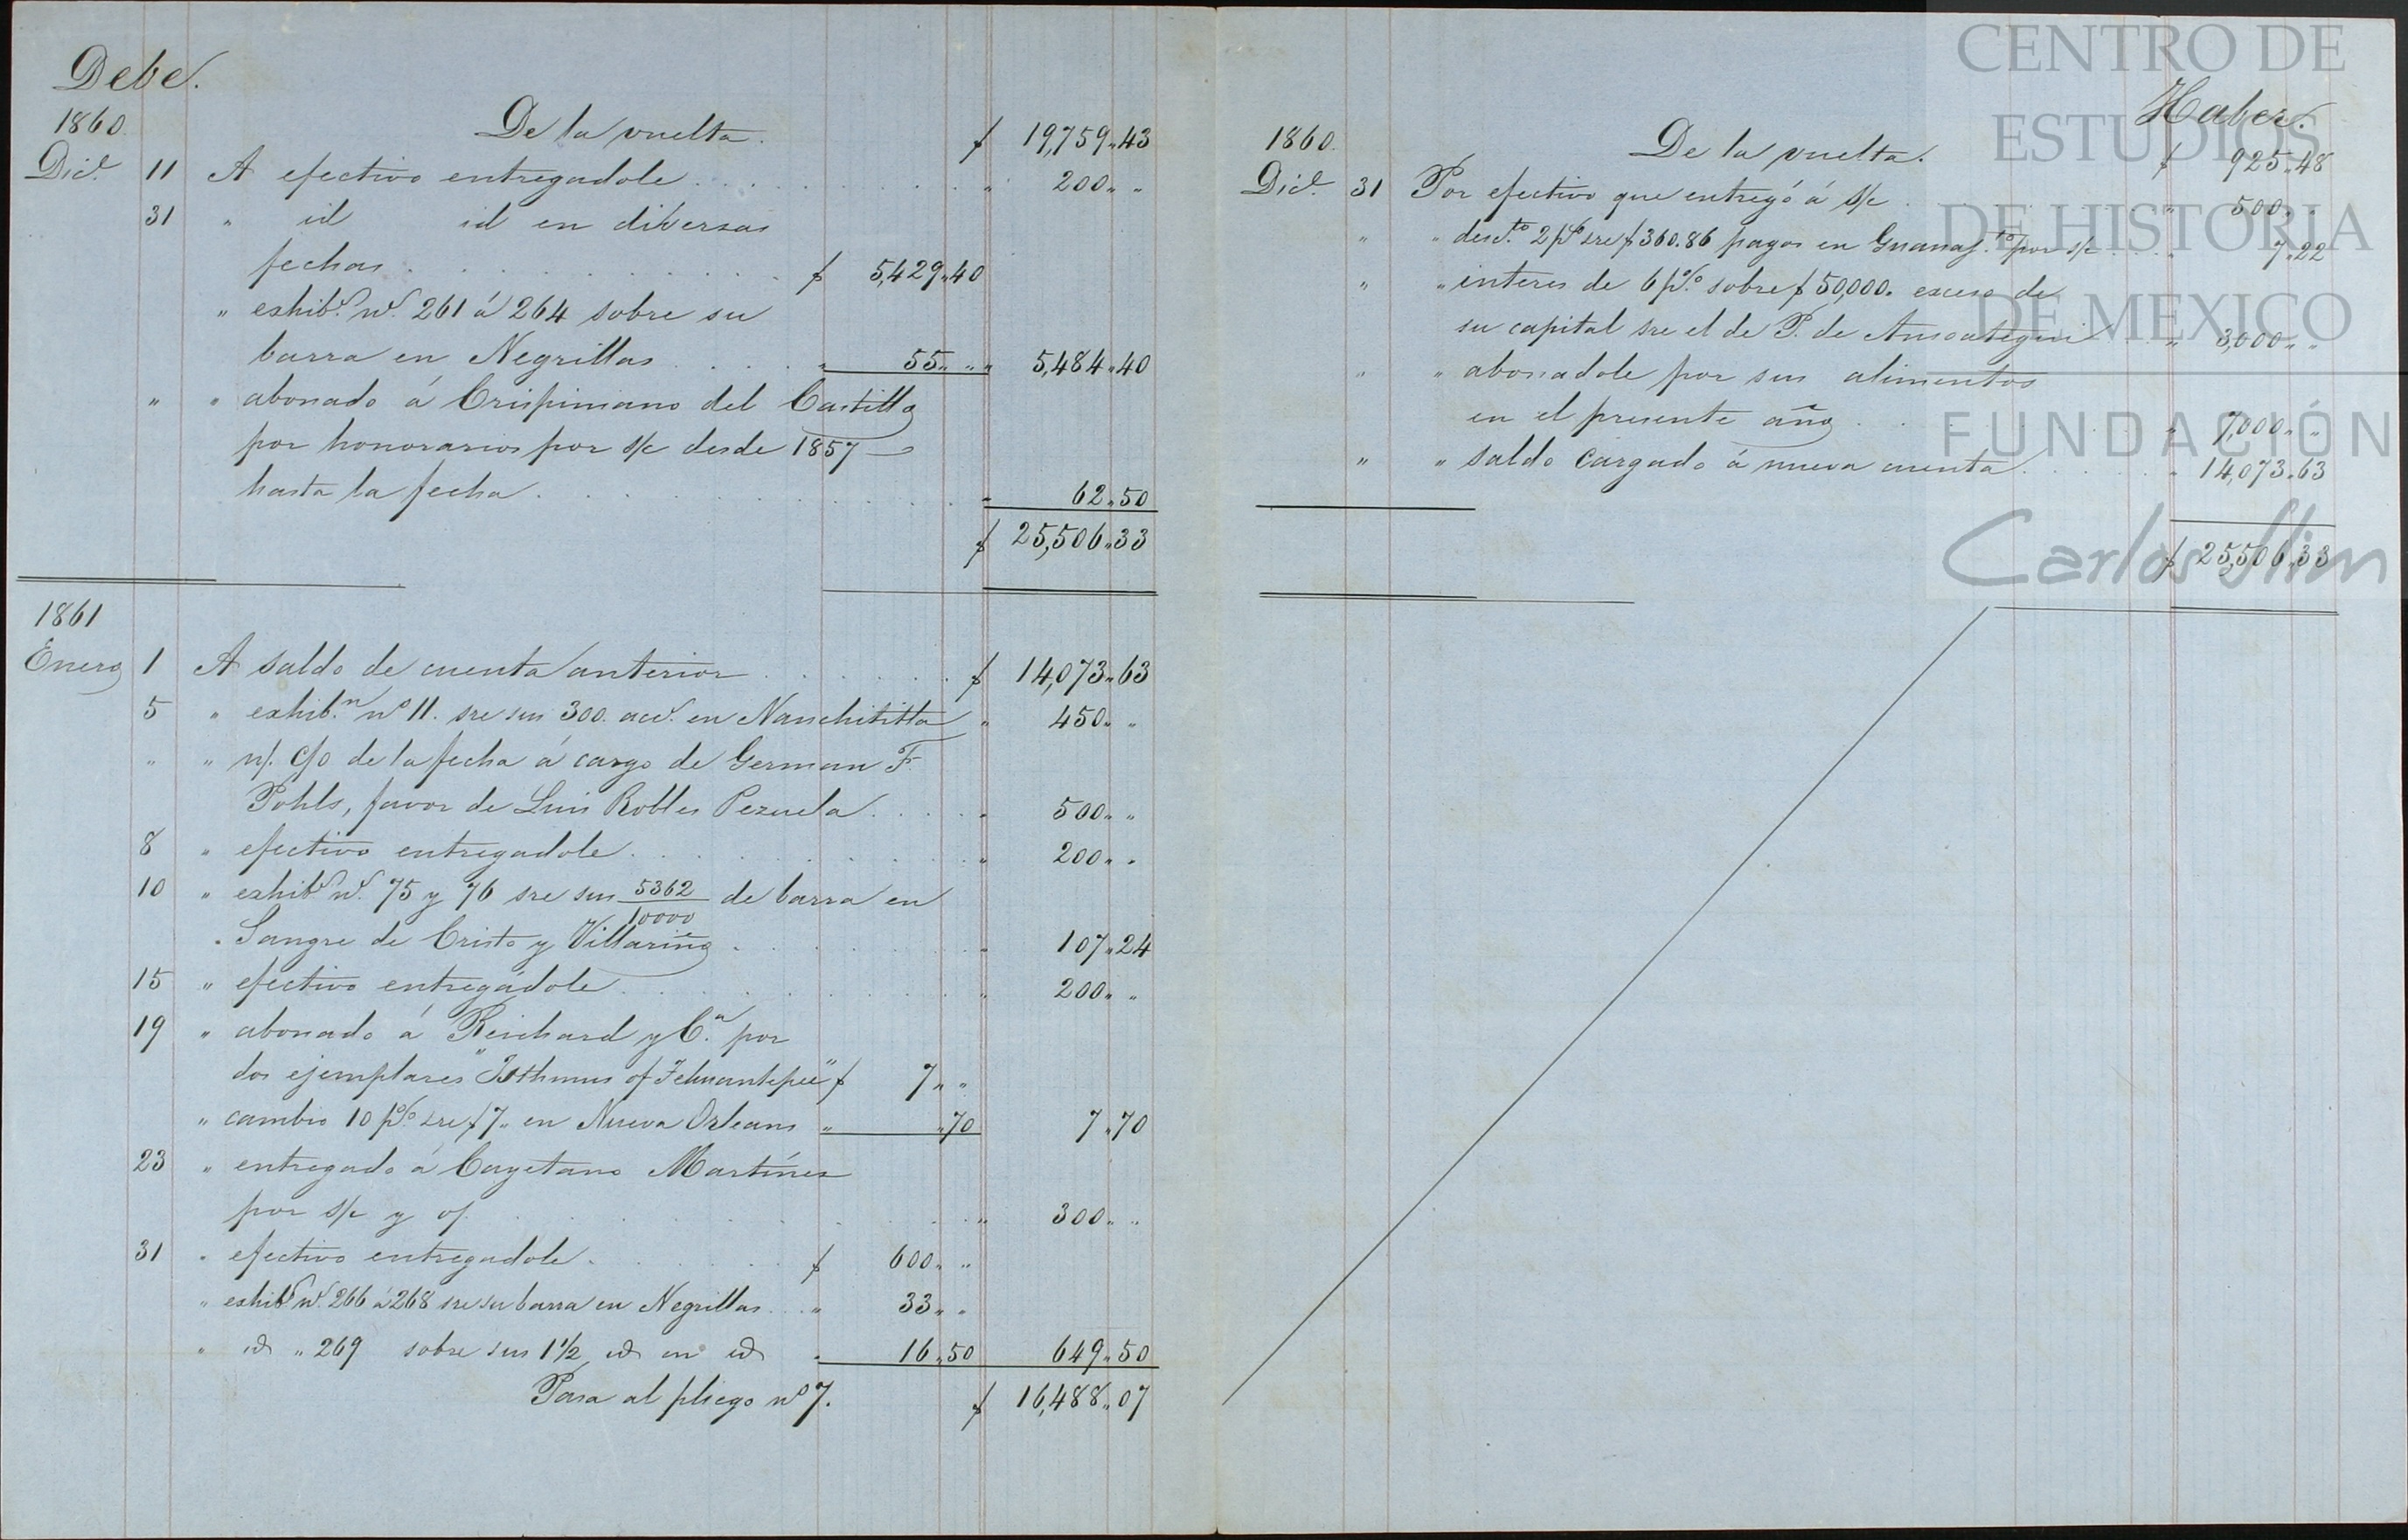 Debe.
1860. De la vuelta. $ 19,759"43
Dice. 11 A efectivo entregadole . . . . " 200" "
31 " id id en diversas
fechas . . . . $ 5,429"40
" exhibs. ns. 261 á 264 sobre su
barra en Negrillas . . . . " 55" " " 5,484"40
" " abonado á Crispiniano del Castillo
por honorarios por s/c desde 1857
hasta la fecha . . . . " 62"50
$ 25,506"33
1861
Enero 1 A saldo de cuenta anterior . . . . $ 14,073"63
5 " exhibn. no 11. sre sus 300. accs. en Nanchititla " 450" "
" " n/. c/o de la fecha á cargo de German F.
Pohls, favor de Luis Robles Pezuela . . . . " 500" "
8 " efectivo entregadole . . . . " 200" "
10 " exhibs. ns. 75 y 76 sre sus 5362/10000 de barra en
Sangre de Cristo y Villarino . . . . " 107"24
15 " efectivo entregadole . . . . " 200" "
19 " abonado á Reichard y Ca. por
dos ejemplares "Isthmus of Tehuantepec" $ 7" "
" cambio 10 p% sre $7" en Nueva Orleans " "70 7"70
23 " entregado á Cayetano Martínez
por s/c y o/. . . . . " 300" "
31 " efectivo entregadole . . . . $ 600" "
" exhibs. ns. 266 á 268 sre su barra en Negrillas . . " 33" "
" id " 269 sobre sus 1 1/2 id en id " 16"50 649"50
Pasa al pliego no 7. $ 16,488"07
Haber.
1860. De la vuelta. $ 925"48
Dice. 31 Por efectivo que entregó á s/c . . . . " 500" "
" " descto. 2 p% sre $360.86 pagos en Guanajto. por s/c . . . " 7"22
" " interes de 6 p% sobre $50,000. exceso de
su capital sre el de P. de Ansoategui " 3,000" "
" " abonadole por sus alimentos
en el presente año . . . . " 7,000" "
" " saldo cargado á nueva cuenta . . . . " 14,073"63
$ 25,506"33
CENTRO DE
ESTUDIOS
DE HISTORIA
DE MEXICO
FUNDACIÓN
Carlos Slim